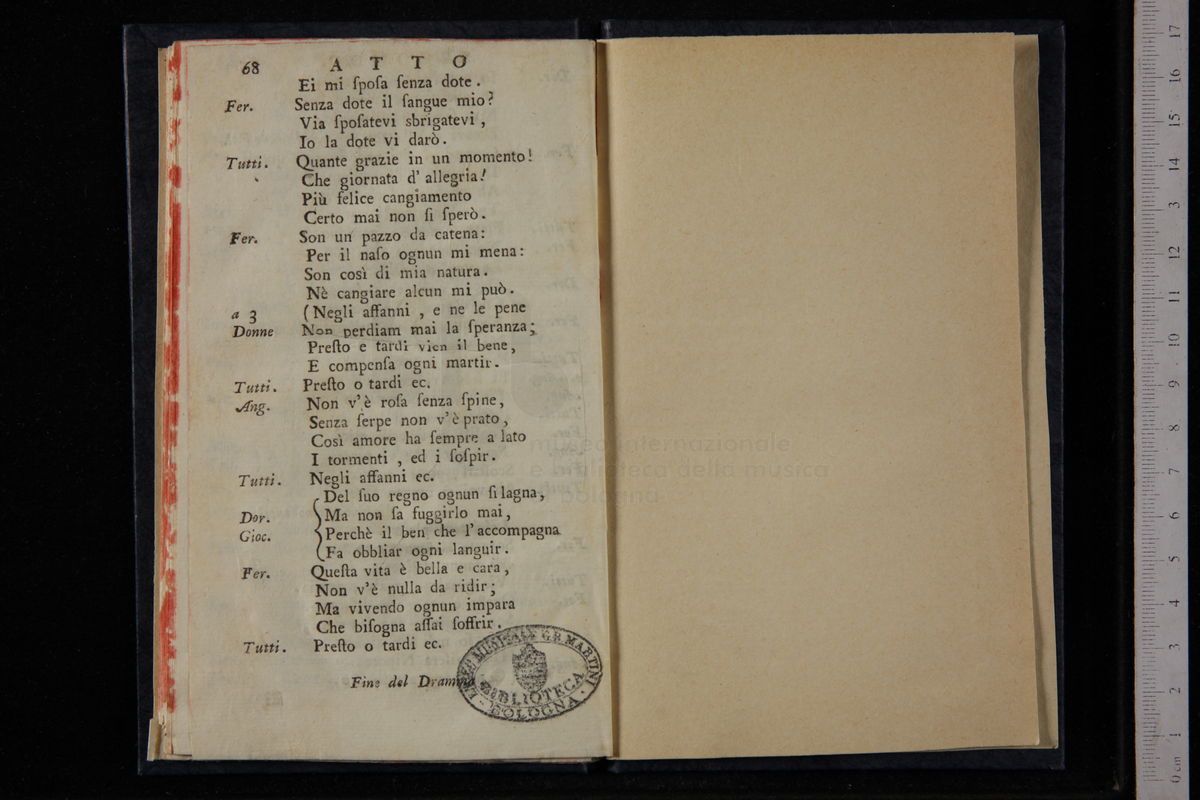 68 ATTO
Ei mi ſpoſa ſenza dote.
Fer. Senza dote il ſangue mio?
Via ſpoſatevi sbrigatevi,
Io la dote vi darò.
Tutti. Quante grazie in un momento!
Che giornata d' allegria!
Più felice cangiamento
Certo mai non ſi ſperò.
Fer. Son un pazzo da catena:
Per il naſo ognun mi mena:
Son così di mia natura.
Nè cangiare alcun mi può.
a 3 (Negli affanni, e ne le pene
Donne Non perdiam mai la ſperanza;
Preſto e tardi vien il bene,
E compenſa ogni martir.
Tutti. Preſto o tardi ec.
Ang. Non v'è roſa ſenza ſpine,
Senza ſerpe non v'è prato,
Così amore ha ſempre a lato
I tormenti, ed i ſoſpir.
Tutti. Negli affanni ec.
Del ſuo regno ognun ſi lagna,
Dor. Ma non ſa fuggirlo mai,
Gioc. Perchè il ben che l'accompagna
Fa obbliar ogni languir.
Fer. Queſta vita è bella e cara,
Non v'è nulla da ridir;
Ma vivendo ognun impara
Che biſogna aſſai ſoffrir.
Tutti. Preſto o tardi ec.
Fine del Dramma
LICEO MUSICALE G.B. MARTINI
BIBLIOTECA
- BOLOGNA -
museo internazionale
e biblioteca della musica
bologna
0 cm 1 2 3 4 5 6 7 8 9 10 11 12 13 14 15 16 17